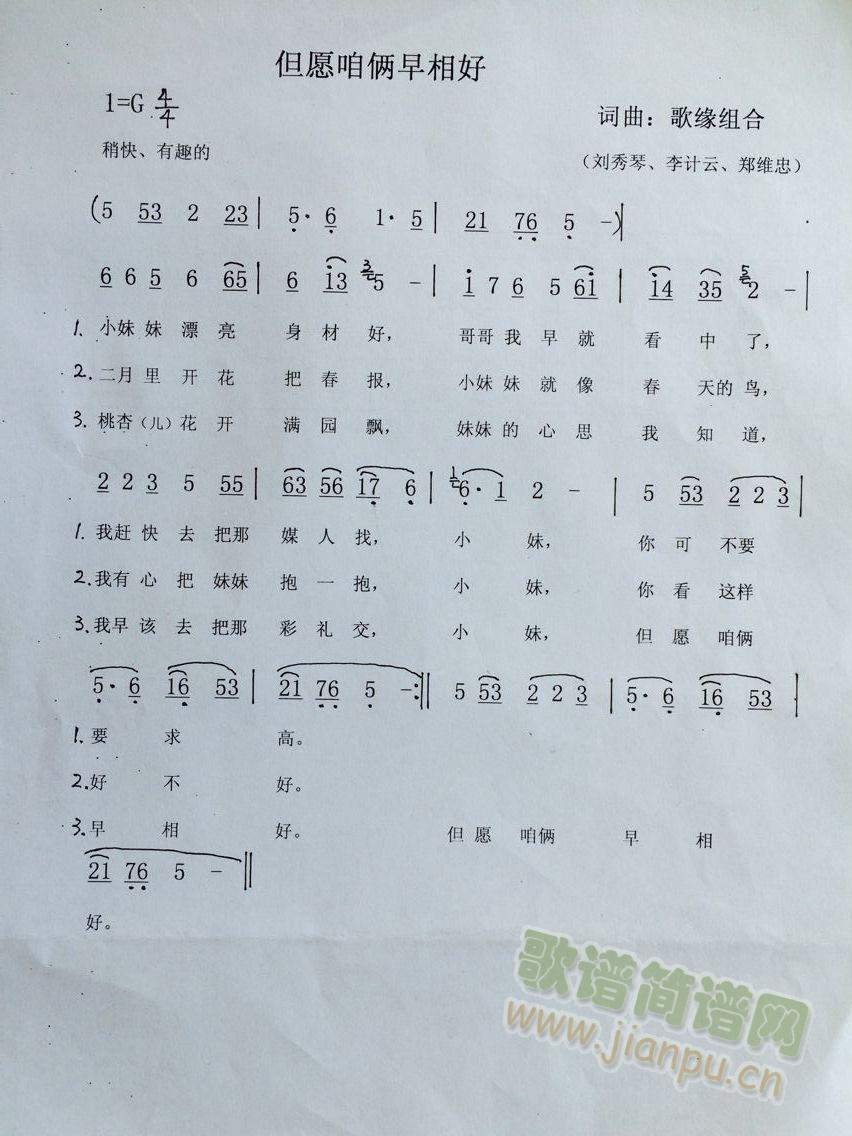 但愿咱俩早相好
1=G 4/4
词曲：歌缘组合
稍快、有趣的
（刘秀琴、李计云、郑维忠）
(5 53 2 23 | 5· 6 1· 5 | 21 76 5 -)|
6 6 5 6 65 | 6 13 3 5 - | i 7 6 5 6i | 14 35 5 2 - |
1. 小妹 妹 漂 亮 身 材 好， 哥哥 我 早 就 看 中 了，
2. 二月 里 开 花 把 春 报， 小妹 妹 就 像 春 天的 鸟，
3. 桃杏（儿）花 开 满 园 飘， 妹妹 的 心 思 我 知 道，
2 2 3 5 55 | 63 56 17 6 | 1 6· 1 2 - | 5 53 2 2 3 |
1. 我赶 快 去 把那 媒 人 找， 小 妹， 你 可 不要
2. 我有 心 把 妹妹 抱 一 抱， 小 妹， 你 看 这样
3. 我早 该 去 把那 彩 礼 交， 小 妹， 但 愿 咱俩
5· 6 16 53 | 21 76 5 - :‖ 5 53 2 2 3 | 5· 6 16 53 |
1. 要 求 高。
2. 好 不 好。
3. 早 相 好。 但 愿 咱俩 早 相
21 76 5 - ‖
好。
歌谱简谱网
www.jianpu.cn